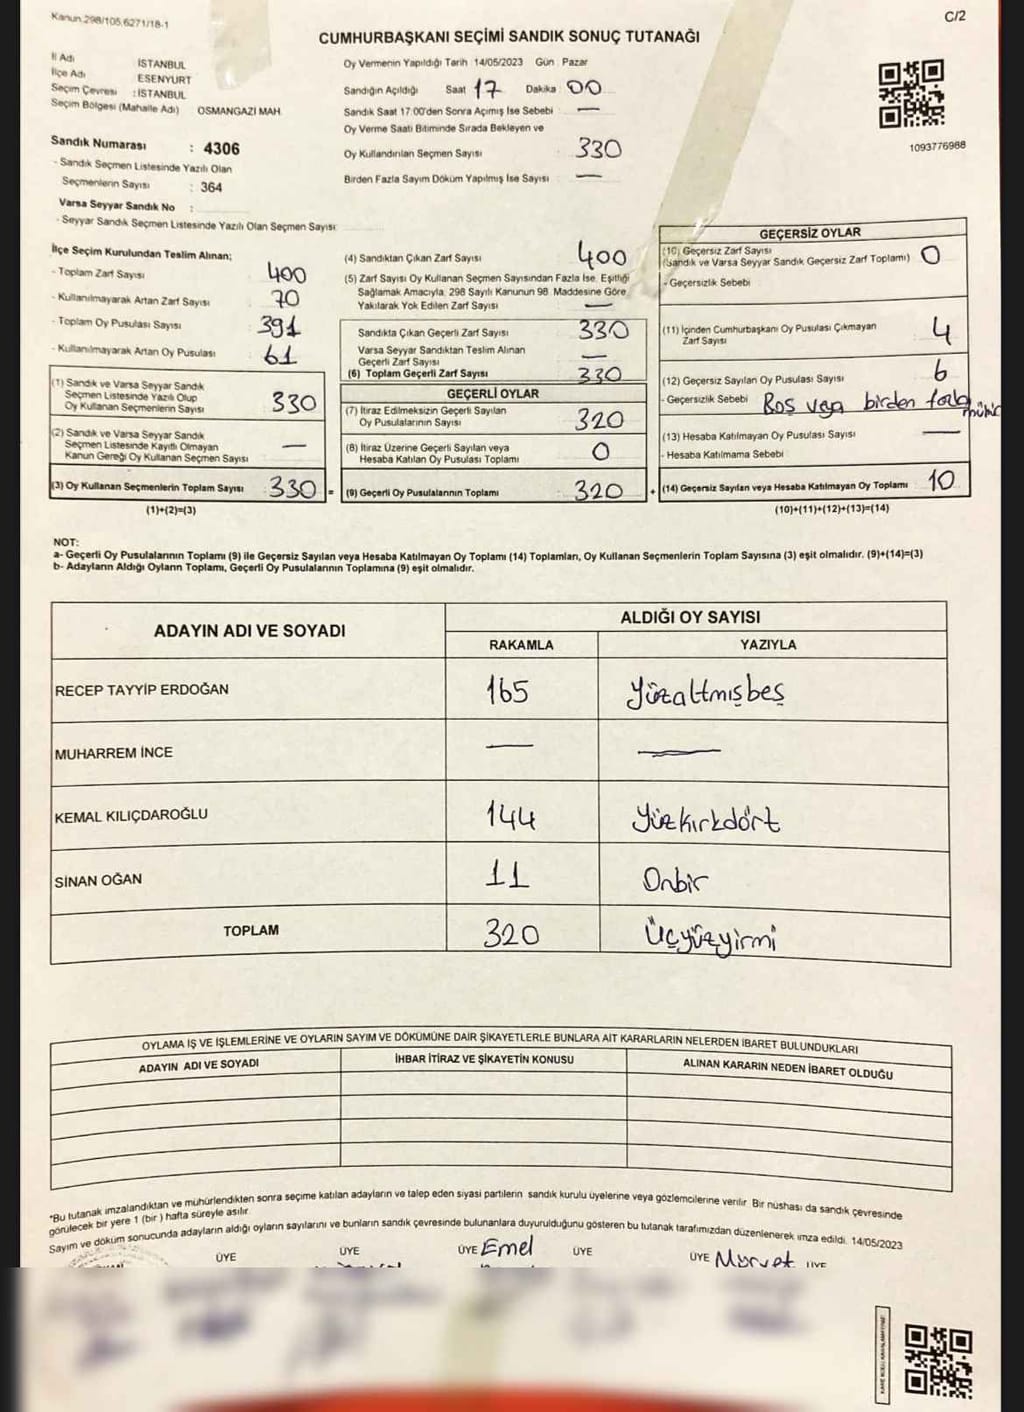 Kanun.298/105.6271/18-1
C/2
CUMHURBAŞKANI SEÇİMİ SANDIK SONUÇ TUTANAĞI
İl Adı İSTANBUL
İlçe Adı ESENYURT
Seçim Çevresi : İSTANBUL
Seçim Bölgesi (Mahalle Adı) OSMANGAZİ MAH.
Sandık Numarası : 4306
- Sandık Seçmen Listesinde Yazılı Olan
Seçmenlerin Sayısı : 364
Varsa Seyyar Sandık No :
- Seyyar Sandık Seçmen Listesinde Yazılı Olan Seçmen Sayısı:
Oy Vermenin Yapıldığı Tarih 14/05/2023 Gün Pazar
Sandığın Açıldığı Saat 17 Dakika 00
Sandık Saat 17:00'den Sonra Açımış İse Sebebi : —
Oy Verme Saati Bitiminde Sırada Bekleyen ve
Oy Kullandırılan Seçmen Sayısı : 330
Birden Fazla Sayım Döküm Yapılmış İse Sayısı : —
1093776988
İlçe Seçim Kurulundan Teslim Alınan;
- Toplam Zarf Sayısı : 400
- Kullanılmayarak Artan Zarf Sayısı : 70
- Toplam Oy Pusulası Sayısı : 391
- Kullanılmayarak Artan Oy Pusulası : 61
(1) Sandık ve Varsa Seyyar Sandık
Seçmen Listesinde Yazılı Olup
Oy Kullanan Seçmenlerin Sayısı : 330
(2) Sandık ve Varsa Seyyar Sandık
Seçmen Listesinde Kayıtlı Olmayan
Kanun Gereği Oy Kullanan Seçmen Sayısı : —
(3) Oy Kullanan Seçmenlerin Toplam Sayısı : 330 =
(1)+(2)=(3)
(4) Sandıktan Çıkan Zarf Sayısı : 400
(5) Zarf Sayısı Oy Kullanan Seçmen Sayısından Fazla İse, Eşitliği
Sağlamak Amacıyla, 298 Sayılı Kanunun 98. Maddesine Göre
Yakılarak Yok Edilen Zarf Sayısı : —
Sandıkta Çıkan Geçerli Zarf Sayısı : 330
Varsa Seyyar Sandıktan Teslim Alınan
Geçerli Zarf Sayısı : —
(6) Toplam Geçerli Zarf Sayısı : 330
GEÇERLİ OYLAR
(7) İtiraz Edilmeksizin Geçerli Sayılan
Oy Pusulalarının Sayısı : 320
(8) İtiraz Üzerine Geçerli Sayılan veya
Hesaba Katılan Oy Pusulası Toplamı : 0
(9) Geçerli Oy Pusulalarının Toplamı : 320 +
GEÇERSİZ OYLAR
(10) Geçersiz Zarf Sayısı
(Sandık ve Varsa Seyyar Sandık Geçersiz Zarf Toplamı) : 0
- Geçersizlik Sebebi
(11) İçinden Cumhurbaşkanı Oy Pusulası Çıkmayan
Zarf Sayısı : 4
(12) Geçersiz Sayılan Oy Pusulası Sayısı : 6
- Geçersizlik Sebebi : Boş veya birden fazla mühür
(13) Hesaba Katılmayan Oy Pusulası Sayısı : —
- Hesaba Katılmama Sebebi :
(14) Geçersiz Sayılan veya Hesaba Katılmayan Oy Toplamı : 10
(10)+(11)+(12)+(13)=(14)
NOT:
a- Geçerli Oy Pusulalarının Toplamı (9) ile Geçersiz Sayılan veya Hesaba Katılmayan Oy Toplamı (14) Toplamları, Oy Kullanan Seçmenlerin Toplam Sayısına (3) eşit olmalıdır. (9)+(14)=(3)
b- Adayların Aldığı Oyların Toplamı, Geçerli Oy Pusulalarının Toplamına (9) eşit olmalıdır.
ADAYIN ADI VE SOYADI ALDIĞI OY SAYISI
RAKAMLA YAZIYLA
RECEP TAYYİP ERDOĞAN 165 Yüzaltmışbeş
MUHARREM İNCE — —
KEMAL KILIÇDAROĞLU 144 Yüzkırkdört
SİNAN OĞAN 11 Onbir
TOPLAM 320 Üçyüzyirmi
OYLAMA İŞ VE İŞLEMLERİNE VE OYLARIN SAYIM VE DÖKÜMÜNE DAİR ŞİKAYETLERLE BUNLARA AİT KARARLARIN NELERDEN İBARET BULUNDUKLARI
ADAYIN ADI VE SOYADI İHBAR İTİRAZ VE ŞİKAYETİN KONUSU ALINAN KARARIN NEDEN İBARET OLDUĞU
*Bu tutanak imzalandıktan ve mühürlendikten sonra seçime katılan adayların ve talep eden siyasi partilerin sandık kurulu üyelerine veya gözlemcilerine verilir. Bir nüshası da sandık çevresinde
görülecek bir yere 1 (bir) hafta süreyle asılır.
Sayım ve döküm sonucunda adayların aldığı oyların sayılarını ve bunların sandık çevresinde bulunanlara duyurulduğunu gösteren bu tutanak tarafımızdan düzenlenerek imza edildi. 14/05/2023
ÜYE ÜYE ÜYE Emel ÜYE ÜYE Mürvet ÜYE